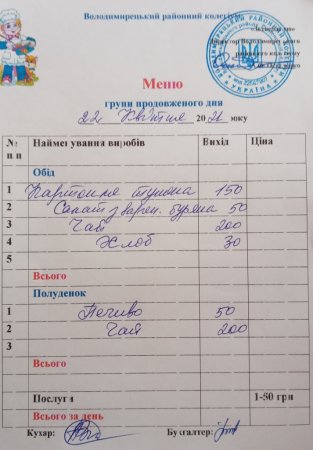 Володимирецький районний колегіум
Меню
групи продовженого дня
22 квітня 2021 року
№ п/п Найменування виробів Вихід Ціна
Обід
1 Картопля тушена 150
2 Салат з варен. буряка 50
3 Чай 200
4 Хліб 30
5
Всього
Полуденок
1 Печиво 50
2 Чай 200
3
Всього
Послуги 1-50 грн
Всього за день
Кухар: Бухгалтер: